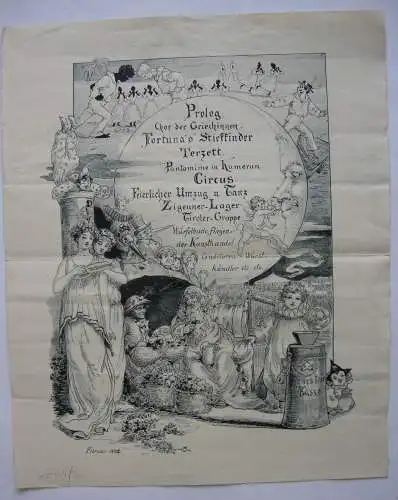 Prolog
Chor der Griechinnen.
Fortuna's Stiefkinder
Terzett
Pantomime in Kamerun
Circus
Feierlicher Umzug u Tanz
Zigeuner-Lager
Tiroler-Gruppe
Würfelbude, fliegen-
der Kunsthandel
Conditorei Wurst-
händler etc etc.